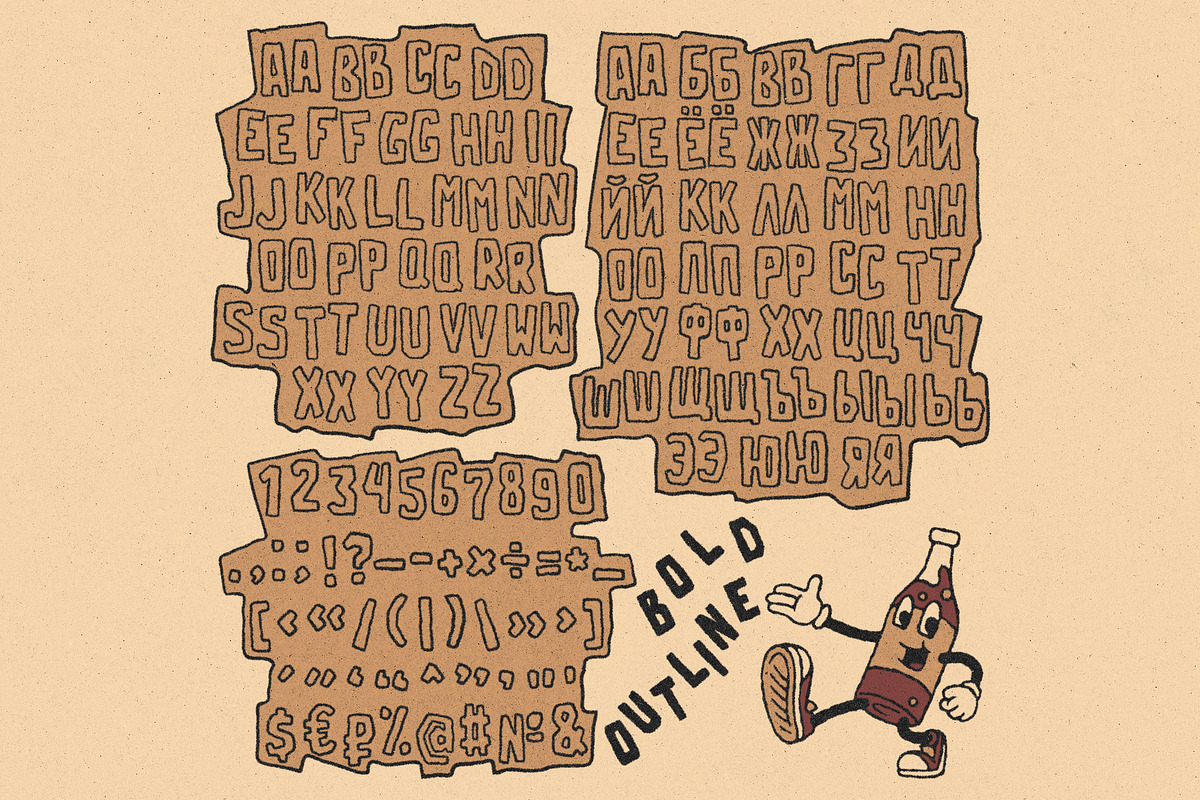 AA BB CC DD
EE FF GG HH II
JJ KK LL MM NN
OO PP QQ RR
SS TT UU VV WW
XX YY ZZ
АА ББ ВВ ГГ ДД
ЕЕ ЁЁ ЖЖ ЗЗ ИИ
ЙЙ КК ЛЛ ММ НН
ОО ПП РР СС ТТ
УУ ФФ ХХ ЦЦ ЧЧ
ШШ ЩЩ ЪЪ ЫЫ ЬЬ
ЭЭ ЮЮ ЯЯ
1234567890
.,:;!?—-+×÷=*_
[‹«/(|)\»›]
$€₽%@#№&
BOLD
OUTLINE